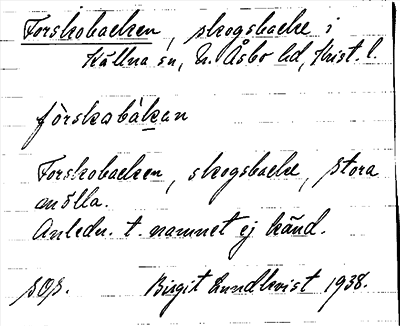 Forskobacken, skogsbacke i
Källna sn, N. Åsbo hd, Krist. l.
fòrskabákan
Forskobacken, skogsbacke, Stora
mölla.
Anledn. t. namnet ej känd.
SOS. Birgit Lundkvist 1938.